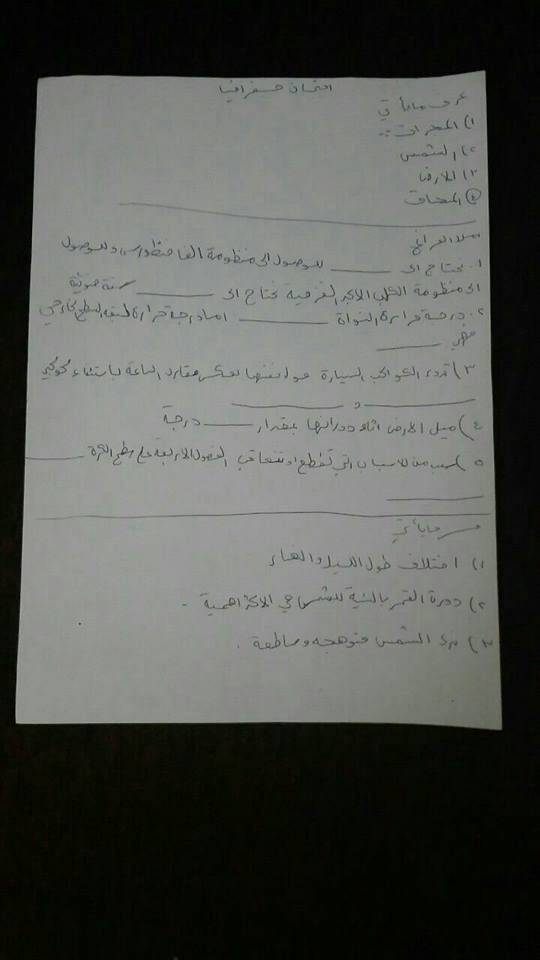 امتحان جغرافيا
عرف ما يأتي
١) المجرات :-
٢) الشمس
٣) الارض
٤) المحاق
املا الفراغ
١. نحتاج الى ______ للوصول الى منظومة الفا قنطورس وللوصول
الى منظومة الكلب الاكبر لغرض نحتاج الى ______ سنة ضوئية
٢. درجة حرارة النواة ______ اما درجة حرارة الشمس السطح الخارجي
فهي ______
٣) تدور الكواكب السيارة حول نفسها بعكس عقارب الساعة باستثناء كوكبي
______ و ______
٤) ميل الارض اثناء دورانها بمقدار ______ درجة
٥) سبب من الاسباب التي تقطع او تتعاقب الفصول الاربعة على سطح الكرة ______
______
فسر ما يأتي
١) اختلاف طول الليل والنهار
٢) دورة القمر بالنسبة للشمس هي الاكثر اهمية .
٣) نرى الشمس متوهجه وساطعة .